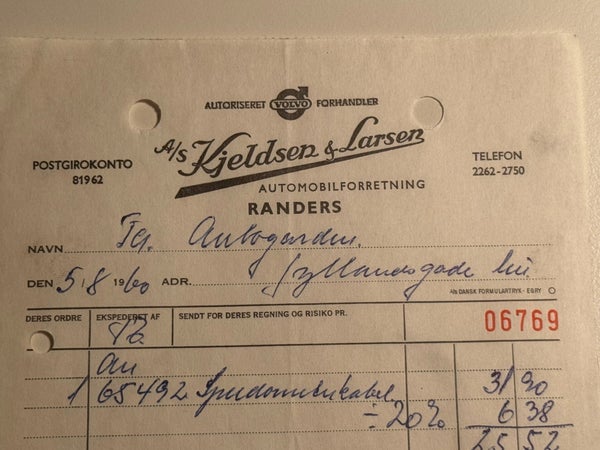 AUTORISERET VOLVO FORHANDLER
A/S Kjeldsen & Larsen
AUTOMOBILFORRETNING
RANDERS
POSTGIROKONTO
81962
TELEFON
2262-2750
NAVN Fa. Autogarden.
DEN 5/8 1960 ADR. Jyllandsgade
A/S DANSK FORMULARTRYK - EGBY
DERES ORDRE EKSPEDERET AF SENDT FOR DERES REGNING OG RISIKO PR. 06769
an
1 65492 Speedometerkabel 31 90
÷ 20% 6 38
25 52